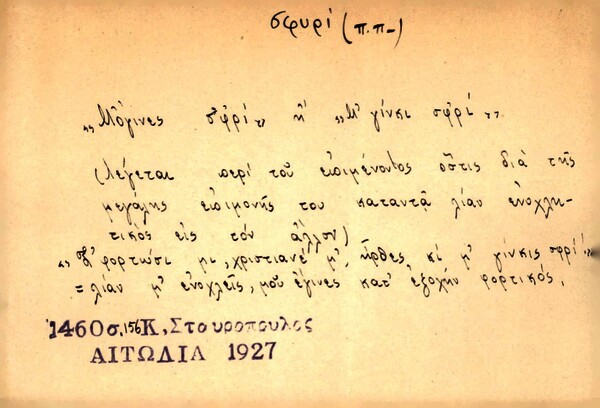 σφυρί (π.π-)
„Μὄγινες σφ'ρί„ ἤ „Μ' γίνκι σφ'ρί„.
(λέγεται περί τοῦ ἐπιμένοντος ὅστις διά τῆς
μεγάλης ἐπιμονῆς του καταντᾷ λίαν ἐνοχλη-
τικός εἰς τόν ἄλλον)
φορτώσι μι, χριστιανέ μ', ἦρθες κί μ' γίνκις σφρί!"
= λίαν μ' ἐνοχλεῖς, μου ἔγινες κατ' ἐξοχήν φορτικός.
1460 σ. 156 Κ. Σταυροπουλος
ΑΙΤΩΔΙΑ 1927